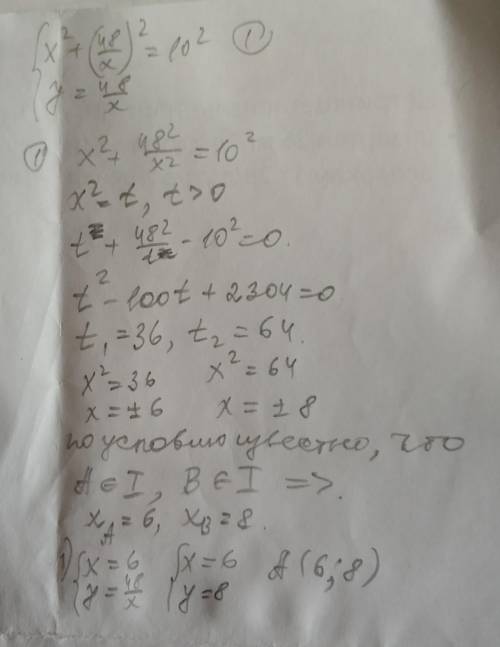 { x² + (48/x)² = 10² ①
{ y = 48/x
① x² + 48²/x² = 10²
x² = t, t > 0
t + 48²/t - 10² = 0.
t² - 100t + 2304 = 0
t₁ = 36, t₂ = 64.
x² = 36 x² = 64
x = ±6 x = ±8
по условию известно, что
A ∈ I, B ∈ I =>.
x_A = 6, x_B = 8.
1) { x = 6 { x = 6 A (6; 8)
{ y = 48/x { y = 8